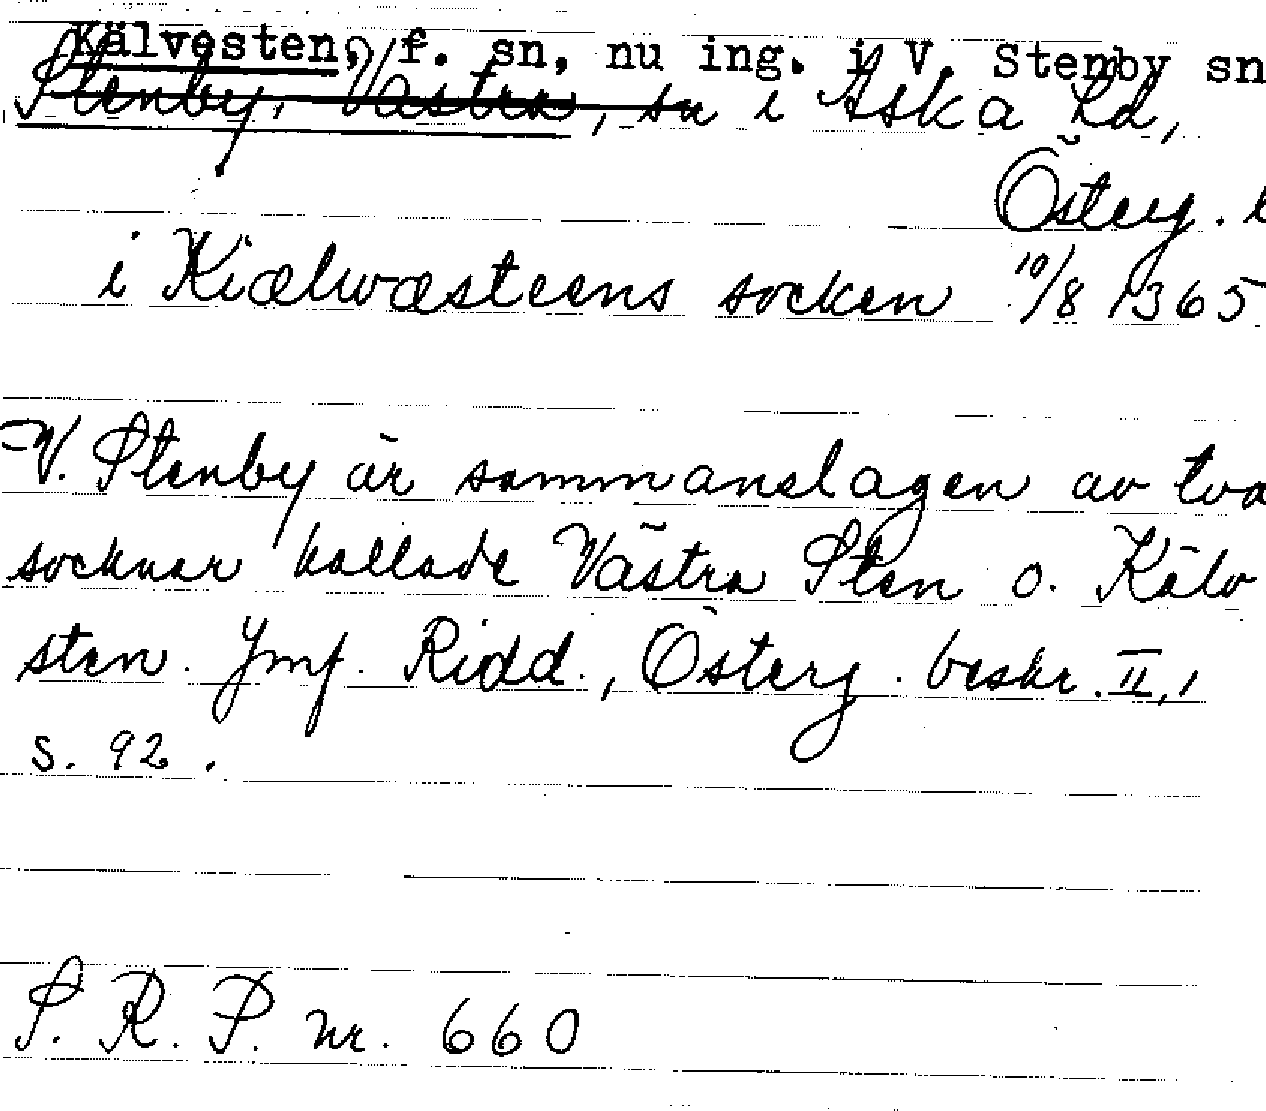 Kälvesten, f. sn, nu ing. i V. Stenby sn
Stenby, Västra, sn i Aska hd,
Österg. l
i Kiælwæsteens socken 10/8 1365
V. Stenby är sammanslagen av två
socknar kallade Västra Sten o. Kälv
sten. Jmf. Ridd., Österg. beskr. II, 1
s. 92.
S. R. P. nr. 660